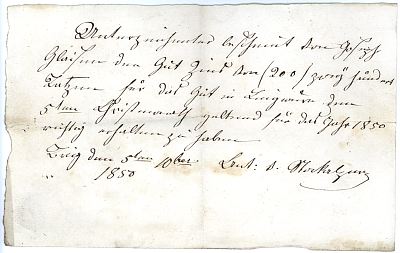 Unterzeichneter bescheint von Joseph
den Gut Zins von (200) zwey hundert
Batzen für das Gut in den
5ten Christmonath geltend für das Jahr 1850
richtig erhalten zu haben
Brig den 5ten 10ber
1850 v. Stockalper